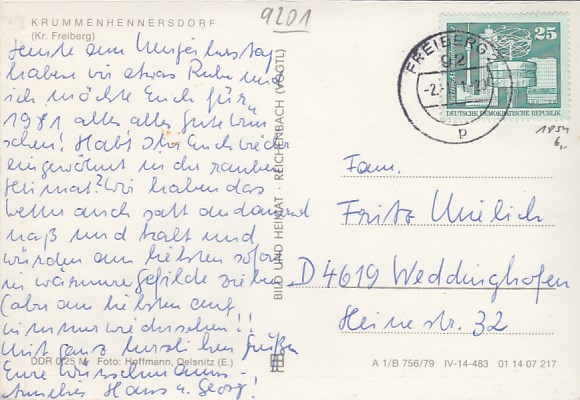 9201
KRUMMENHENNERSDORF
(Kr. Freiberg)
Heute am Neujahrstag
haben wir etwas Ruhe und
ich möchte Euch für
1981 alles alles gute wün
schen! Habt Ihr Euch wieder
eingewöhnt in der rauhen
Heimat? Wir haben das
Wetter auch satt andauernd
naß und kalt und
würden am liebsten sofort
in wärmere gefilde ziehen
(aber am liebsten auf
nimmer wiedersehen!!
Mit ganz herzlichen Grüßen
Eure
Annelies Hans u. Georg!
DDR 0,25 M Foto: Hoffmann, Oelsnitz (E.)
BILD UND HEIMAT · REICHENBACH (VOGTL)
FREIBERG 2
92
p
25
DEUTSCHE DEMOKRATISCHE REPUBLIK
Fam.
Fritz Uhlich
D 4619 Weddinghofen
Heinestr. 32
A 1/B 756/79 IV-14-483 01 14 07 217